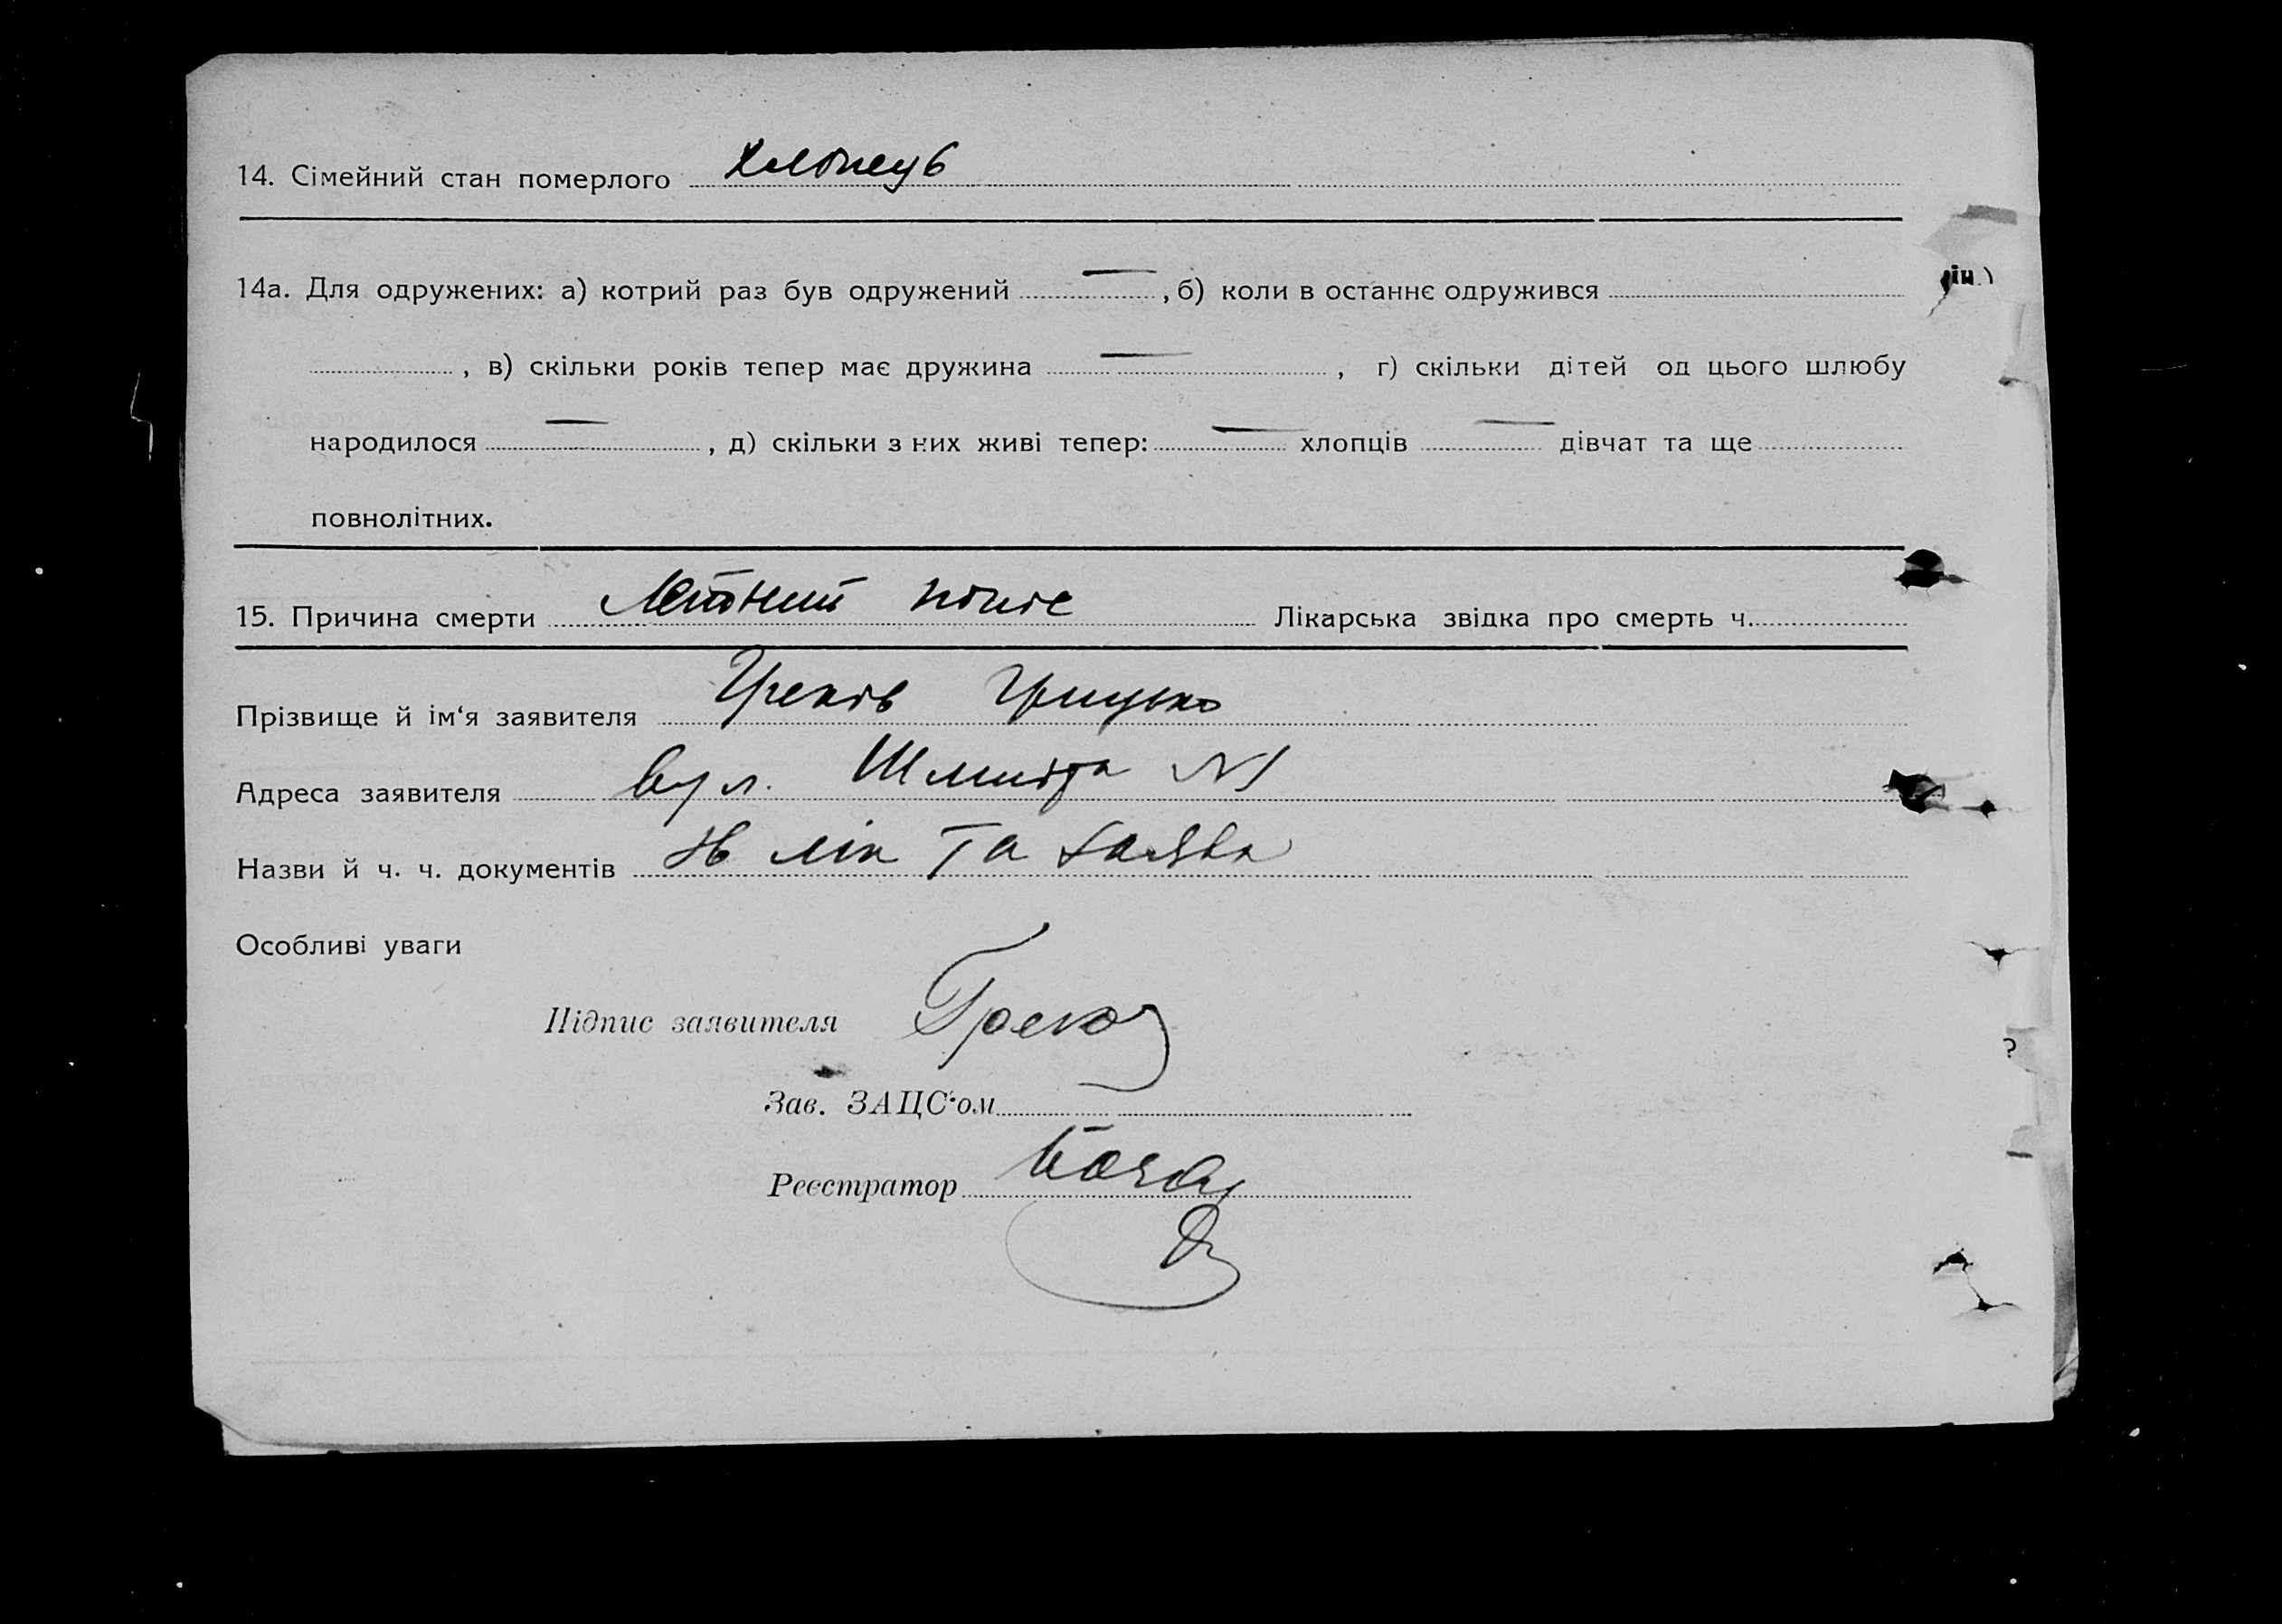 14. Сімейний стан померлого хлопець
14а. Для одружених: а) котрий раз був одружений — , б) коли в останнє одружився
ін.)
, в) скільки років тепер має дружина — , г) скільки дітей од цього шлюбу
народилося — , д) скільки з них живі тепер: — хлопців — дівчат та ще
повнолітних.
15. Причина смерти Літній понос Лікарська звідка про смерть ч.
Прізвище й ім‘я заявителя Греков Грицько
Адреса заявителя вул. Шмидта №1
Назви й ч. ч. документів лік та заява
Особливі уваги
Підпис заявителя Греков
?
Зав. ЗАЦС‘ом
Реєстратор